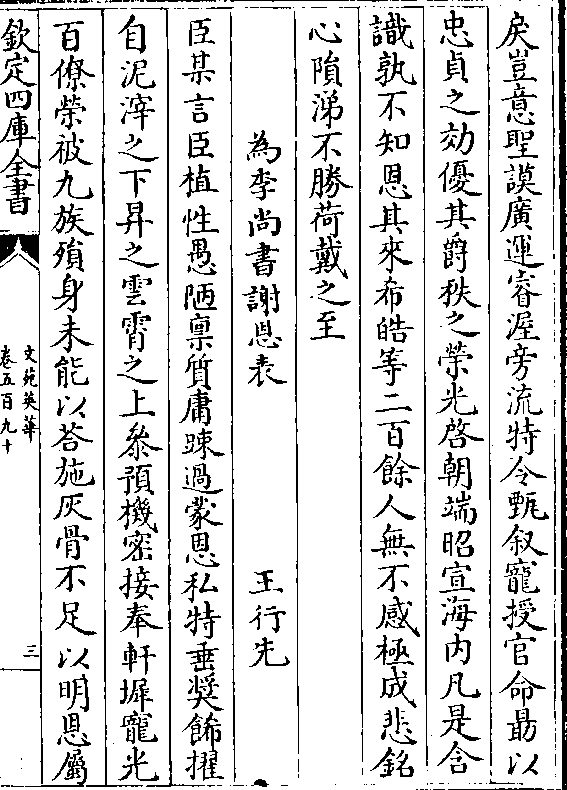 戾豈意聖謨廣運睿渥旁流特令甄叙寵授官命勗以
忠貞之効優其爵秩之榮光啓朝端昭宣海内凡是含
識孰不知恩其來希皓等二百餘人無不感極成悲銘
心隕涕不勝荷戴之至
為李尚書謝恩表 王行先
臣某言臣植性愚陋稟質庸踈過蒙恩私特垂奬餙擢
自泥滓之下昇之雲霄之上叅預機密接奉軒墀寵光
百僚榮被九族殞身未能以荅施灰骨不足以明恩屬
欽定四庫全書
文苑英華
卷五百九十
三